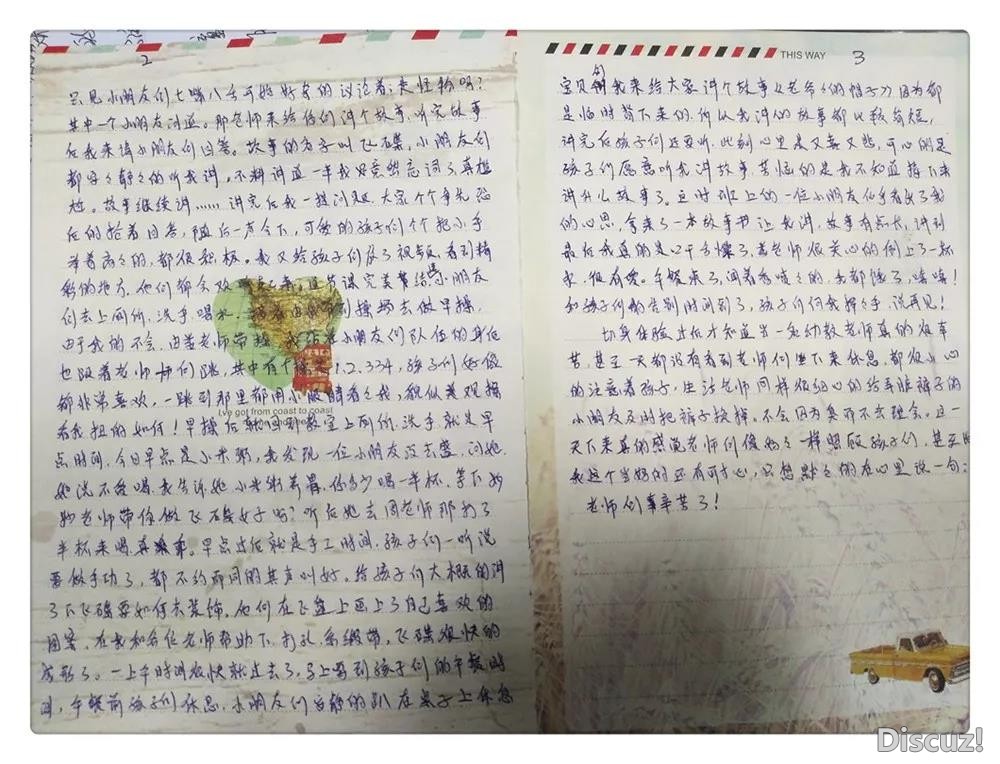 2
只见小朋友们七嘴八舌开始好奇的议论着：来怪物吗？
其中一个小朋友问道。那老师来给你们讲个故事，听完故事
后我来请小朋友们回答。故事的名字叫飞碟，小朋友们
都安安静静的听我讲。不料讲道一半我好竟然忘词了，真尴
尬。故事继续讲……讲完后我一提问题，大家个个争先恐
后的抢着回答，随后一声令下，可爱的孩子们个个把小手
举着高高的，都很积极。我又给孩子们放了视频，看到精
彩的地方，他们都会欢 这节课完美结 小朋友
们去上厕所、洗手、喝水 到操场去做早操，
由于我的不会，由姜老师带 小朋友们队伍的身后
也跟着老师 们跳，其中有个 1.2.334，孩子们好像
都非常喜欢，一跳到那里都用小眼睛看看我，貌似要观摩
I,ve got from coast to coast
看我扭的如何！早操后就回到教室上厕所、洗手就是早
点时间，今日早点是小米粥，我发现一位小朋友没去盛，问她
她说不爱喝，我告诉她小米粥养胃，你多少喝一半杯，等下妈
妈老师带你做飞碟好不好吗？听后她去周老师那打了
半杯来喝，真 。早点过后就是手工时间，孩子们一听说
要做手功了，都不约而同的其声叫好。给孩子们大概的讲
了下飞碟要如何去装饰。他们在飞盘上画上了自己喜欢的
图案，在我和各位老师帮助下，打孔、系缎带，飞碟很快的
成形了。一上午时间很快就过去了，马上等到孩子们的午餐时
间，午餐前孩子们休息，小朋友们安静的趴在桌子上休息
THIS WAY
3
宝贝们我来给大家讲个故事《老爷爷的帽子》，因为都
是临时背下来的，所以我讲的故事都比较简短，
讲完后孩子们还要听，此刻心里是又喜又愁，可心的是
孩子们愿意听我讲故事，苦恼的是我不知道接下来
讲什么故事了。这时班上的一位小朋友似乎看出了我
的心思，拿来了一本故事书让我讲，故事有点长，讲到
最后我真的是口干舌燥了，姜老师很关心的倒上了一杯
水，很有爱。午餐来了，闻着香喷喷的，我都饿了，嘻嘻！
和孩子们的告别时间到了，孩子们向我挥挥手，说再见！
切身体验过后才知道当一名幼教老师真的很辛
苦，甚至一天都没有看到老师们坐下来休息，都很小心
的注意着孩子，生活老师同样很细心的给弄脏裤子的
小朋友及时把裤子换掉。不会因为臭而不去理会。这一
天下来真的感觉老师们像妈妈一样照顾孩子们，甚至比
我这个当妈的还有耐心，只想默默的在心里说一句：
老师们辛苦了！
Discuz!